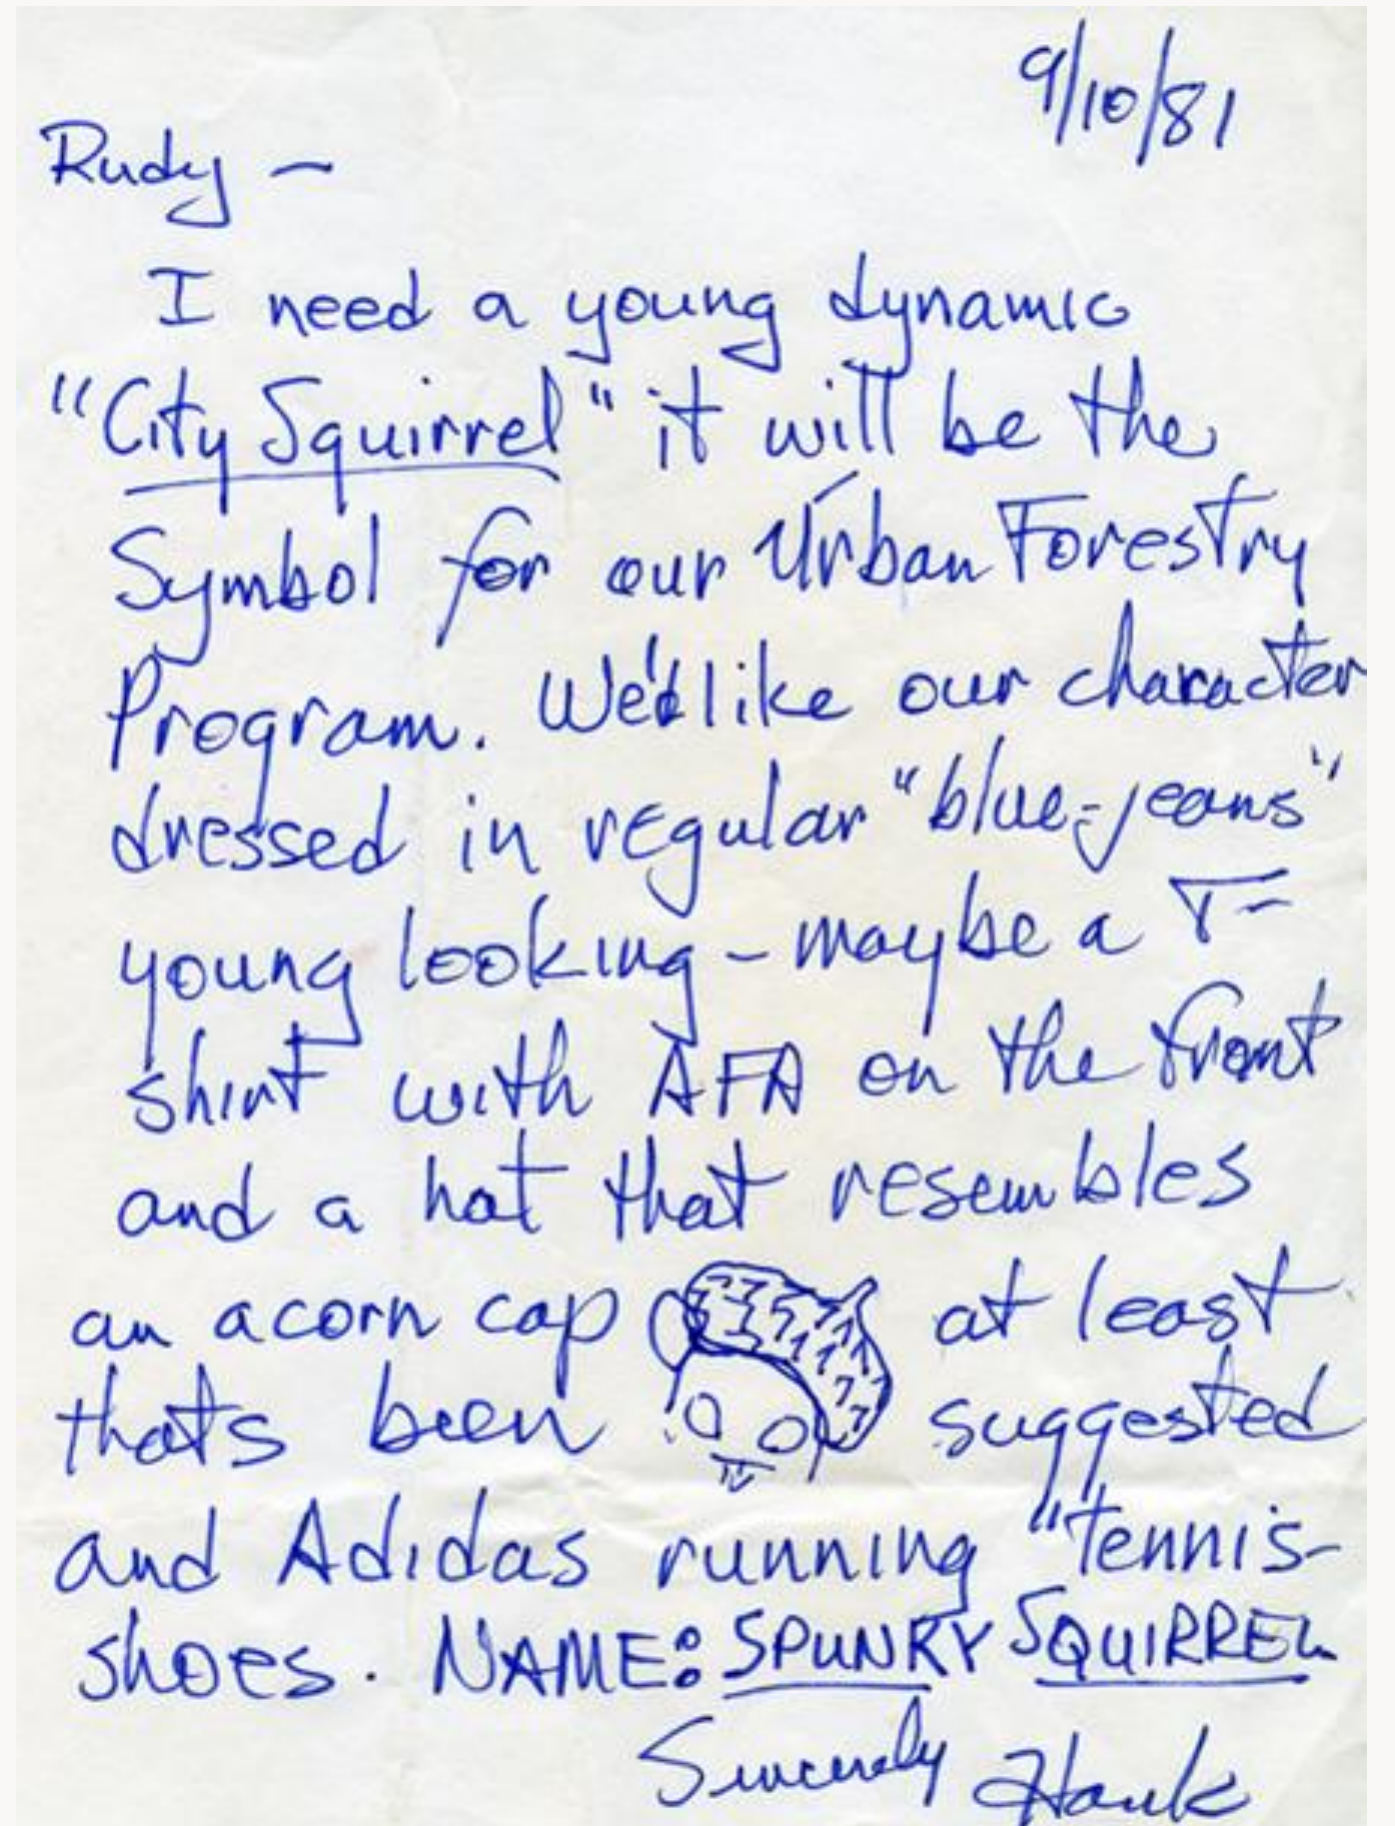 9/10/81
Rudy —
I need a young dynamic
"City Squirrel" it will be the
Symbol for our Urban Forestry
Program. We'd like our character
dressed in regular "blue-jeans"
young looking - maybe a T-
shirt with AFA on the front
and a hat that resembles
an acorn cap at least
thats been suggested
and Adidas running "tennis-
shoes. NAME: SPUNKY SQUIRREL
Sincerely Hank